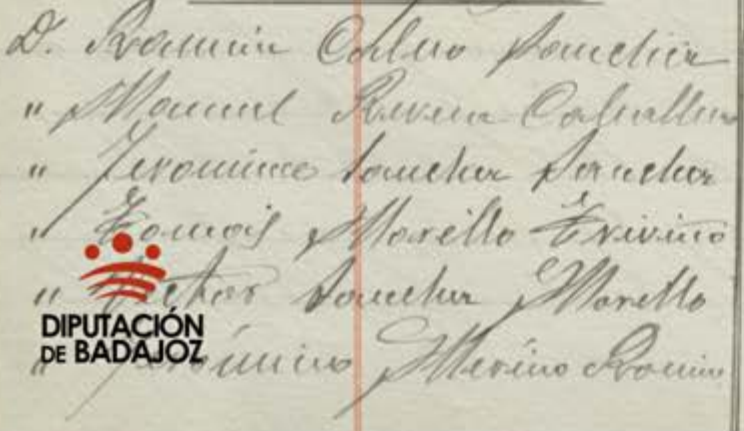 D. Ramón Calvo Sanchez
" Manuel Rivera Caballero
" Jeronimo Sanchez Sanchez
" Tomás Morillo Triviño
" Victor Sanchez Morillo
" Jerónimo Merino
DIPUTACIÓN
DE BADAJOZ